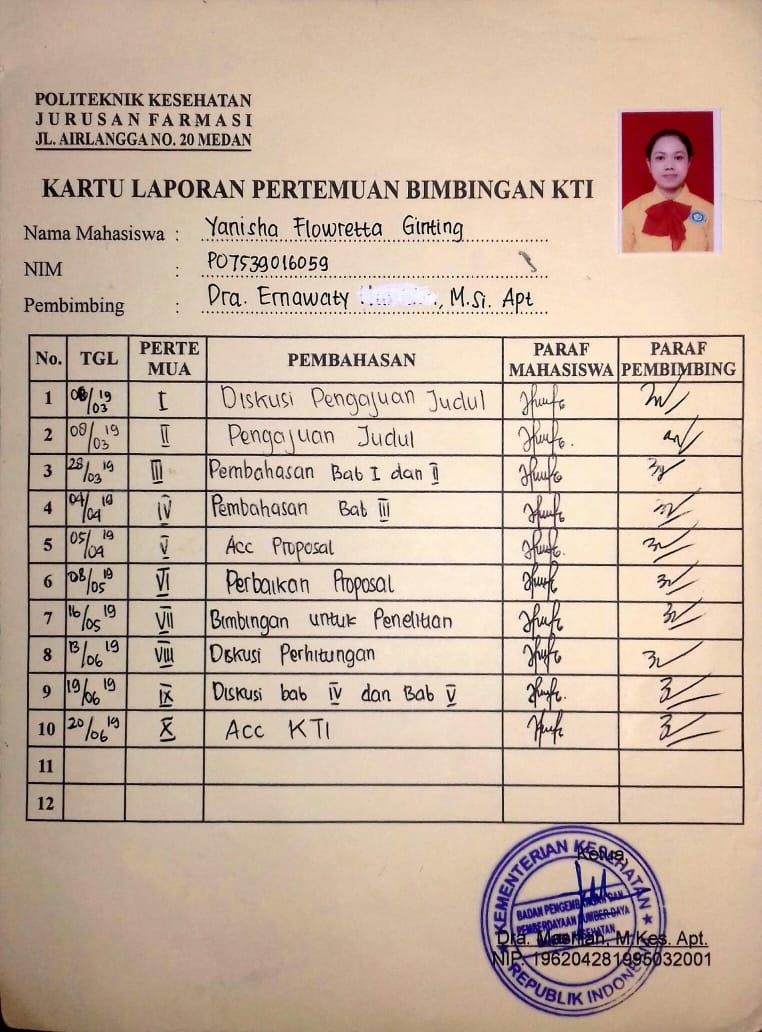 POLITEKNIK KESEHATAN
JURUSAN FARMASI
JL. AIRLANGGA NO. 20 MEDAN
KARTU LAPORAN PERTEMUAN BIMBINGAN KTI
Nama Mahasiswa : Yanisha Flowretta Ginting
NIM : P07539016059
Pembimbing : Dra. Ernawaty , M.Si. Apt
No. TGL PERTEMUA PEMBAHASAN PARAF MAHASISWA PARAF PEMBIMBING
1 08/03 19 I Diskusi Pengajuan Judul
2 08/03 19 II Pengajuan Judul
3 28/03 19 III Pembahasan Bab I dan II
4 04/04 19 IV Pembahasan Bab III
5 05/04 19 V Acc Proposal
6 08/05 19 VI Perbaikan Proposal
7 16/05 19 VII Bimbingan untuk Penelitian
8 13/06 19 VIII Diskusi Perhitungan
9 19/06 19 IX Diskusi bab IV dan Bab V
10 20/06 19 X Acc KTI
11
12
Ketua,
KEMENTERIAN KESEHATAN
BADAN PENGEMBANGAN DAN
PEMBERDAYAAN SUMBER DAYA
KESEHATAN
REPUBLIK INDONESIA
Dra. Masniah, M.Kes. Apt.
NIP. 196204281995032001